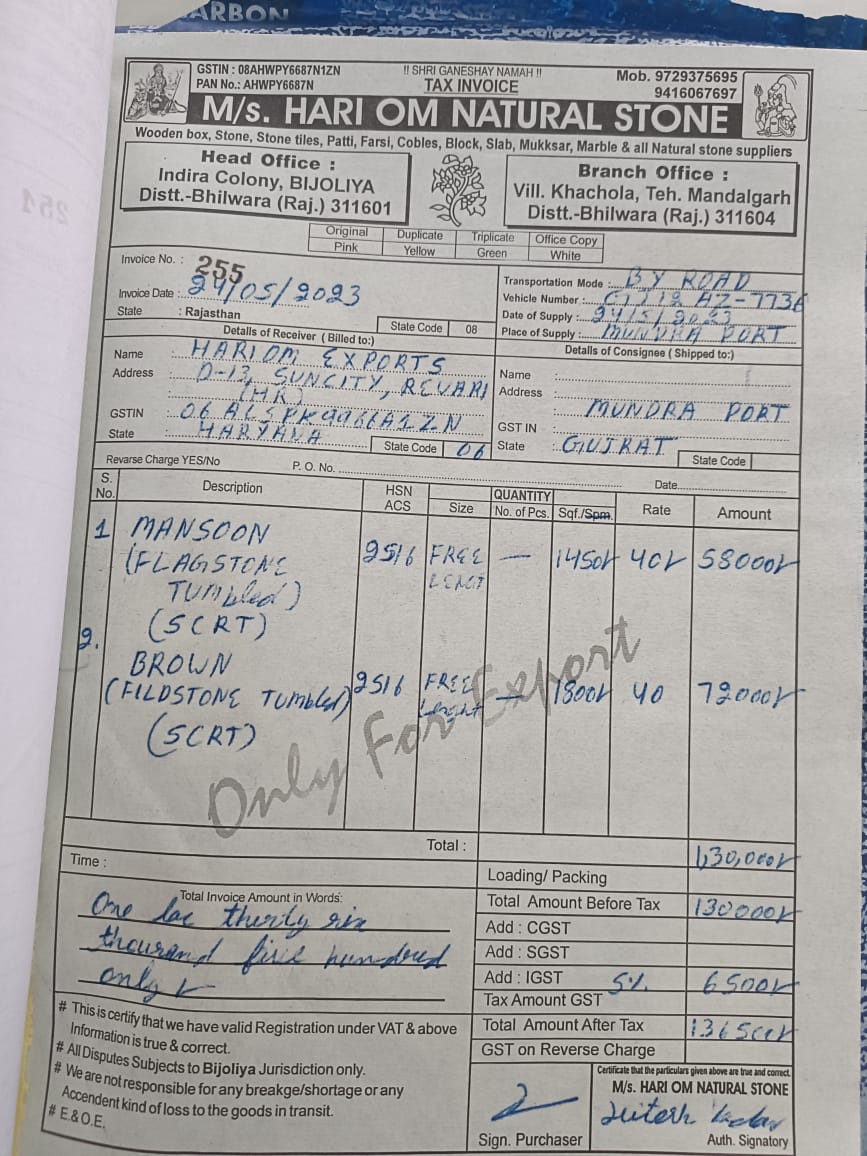 ARBON
GSTIN : 08AHWPY6687N1ZN
PAN No.: AHWPY6687N
!! SHRI GANESHAY NAMAH !!
TAX INVOICE
Mob. 9729375695
9416067697
M/s. HARI OM NATURAL STONE
Wooden box, Stone, Stone tiles, Patti, Farsi, Cobles, Block, Slab, Mukksar, Marble & all Natural stone suppliers
Head Office :
Indira Colony, BIJOLIYA
Distt.-Bhilwara (Raj.) 311601
Branch Office :
Vill. Khachola, Teh. Mandalgarh
Distt.-Bhilwara (Raj.) 311604
Original Duplicate Triplicate Office Copy
Pink Yellow Green White
Invoice No. : 255
Invoice Date : 24/05/2023
State : Rajasthan
State Code 08
Transportation Mode : BY ROAD
Vehicle Number : GJ12 AZ-7736
Date of Supply : 24/5/2023
Place of Supply : MUNDRA PORT
Details of Receiver ( Billed to:)
Name HARIOM EXPORTS
Address D-13, SUNCITY, REVARI
(HR)
GSTIN
State HARYANA
State Code 06
Details of Consignee ( Shipped to:)
Name :
Address :
MUNDRA PORT
GST IN
State : GUJRAT
State Code
Revarse Charge YES/No
P. O. No.
Date
S. No. Description HSN ACS Size QUANTITY No. of Pcs. Sqf./Spm. Rate Amount
1 MANSOON 2516 FREE — 1450/- 40/- 58000/-
(FLAGSTONE
TUMbled)
(SCRT)
2. BROWN 2516 FREE — 1800/- 40 72000/-
(FILDSTONE TUMbled)
(SCRT)
Only For Export
Total : 1,30,000/-
Time :
Loading/ Packing
Total Invoice Amount in Words:
One lac thirty six
thousand five hundred
only
Total Amount Before Tax 130000/-
Add : CGST
Add : SGST
Add : IGST 5% 6500/-
Tax Amount GST
Total Amount After Tax 136500/-
GST on Reverse Charge
# This is certify that we have valid Registration under VAT & above
Information is true & correct.
# All Disputes Subjects to Bijoliya Jurisdiction only.
# We are not responsible for any breakge/shortage or any
Accendent kind of loss to the goods in transit.
# E.& O.E.
Certificate that the particulars given above are true and correct.
M/s. HARI OM NATURAL STONE
Sign. Purchaser
Auth. Signatory